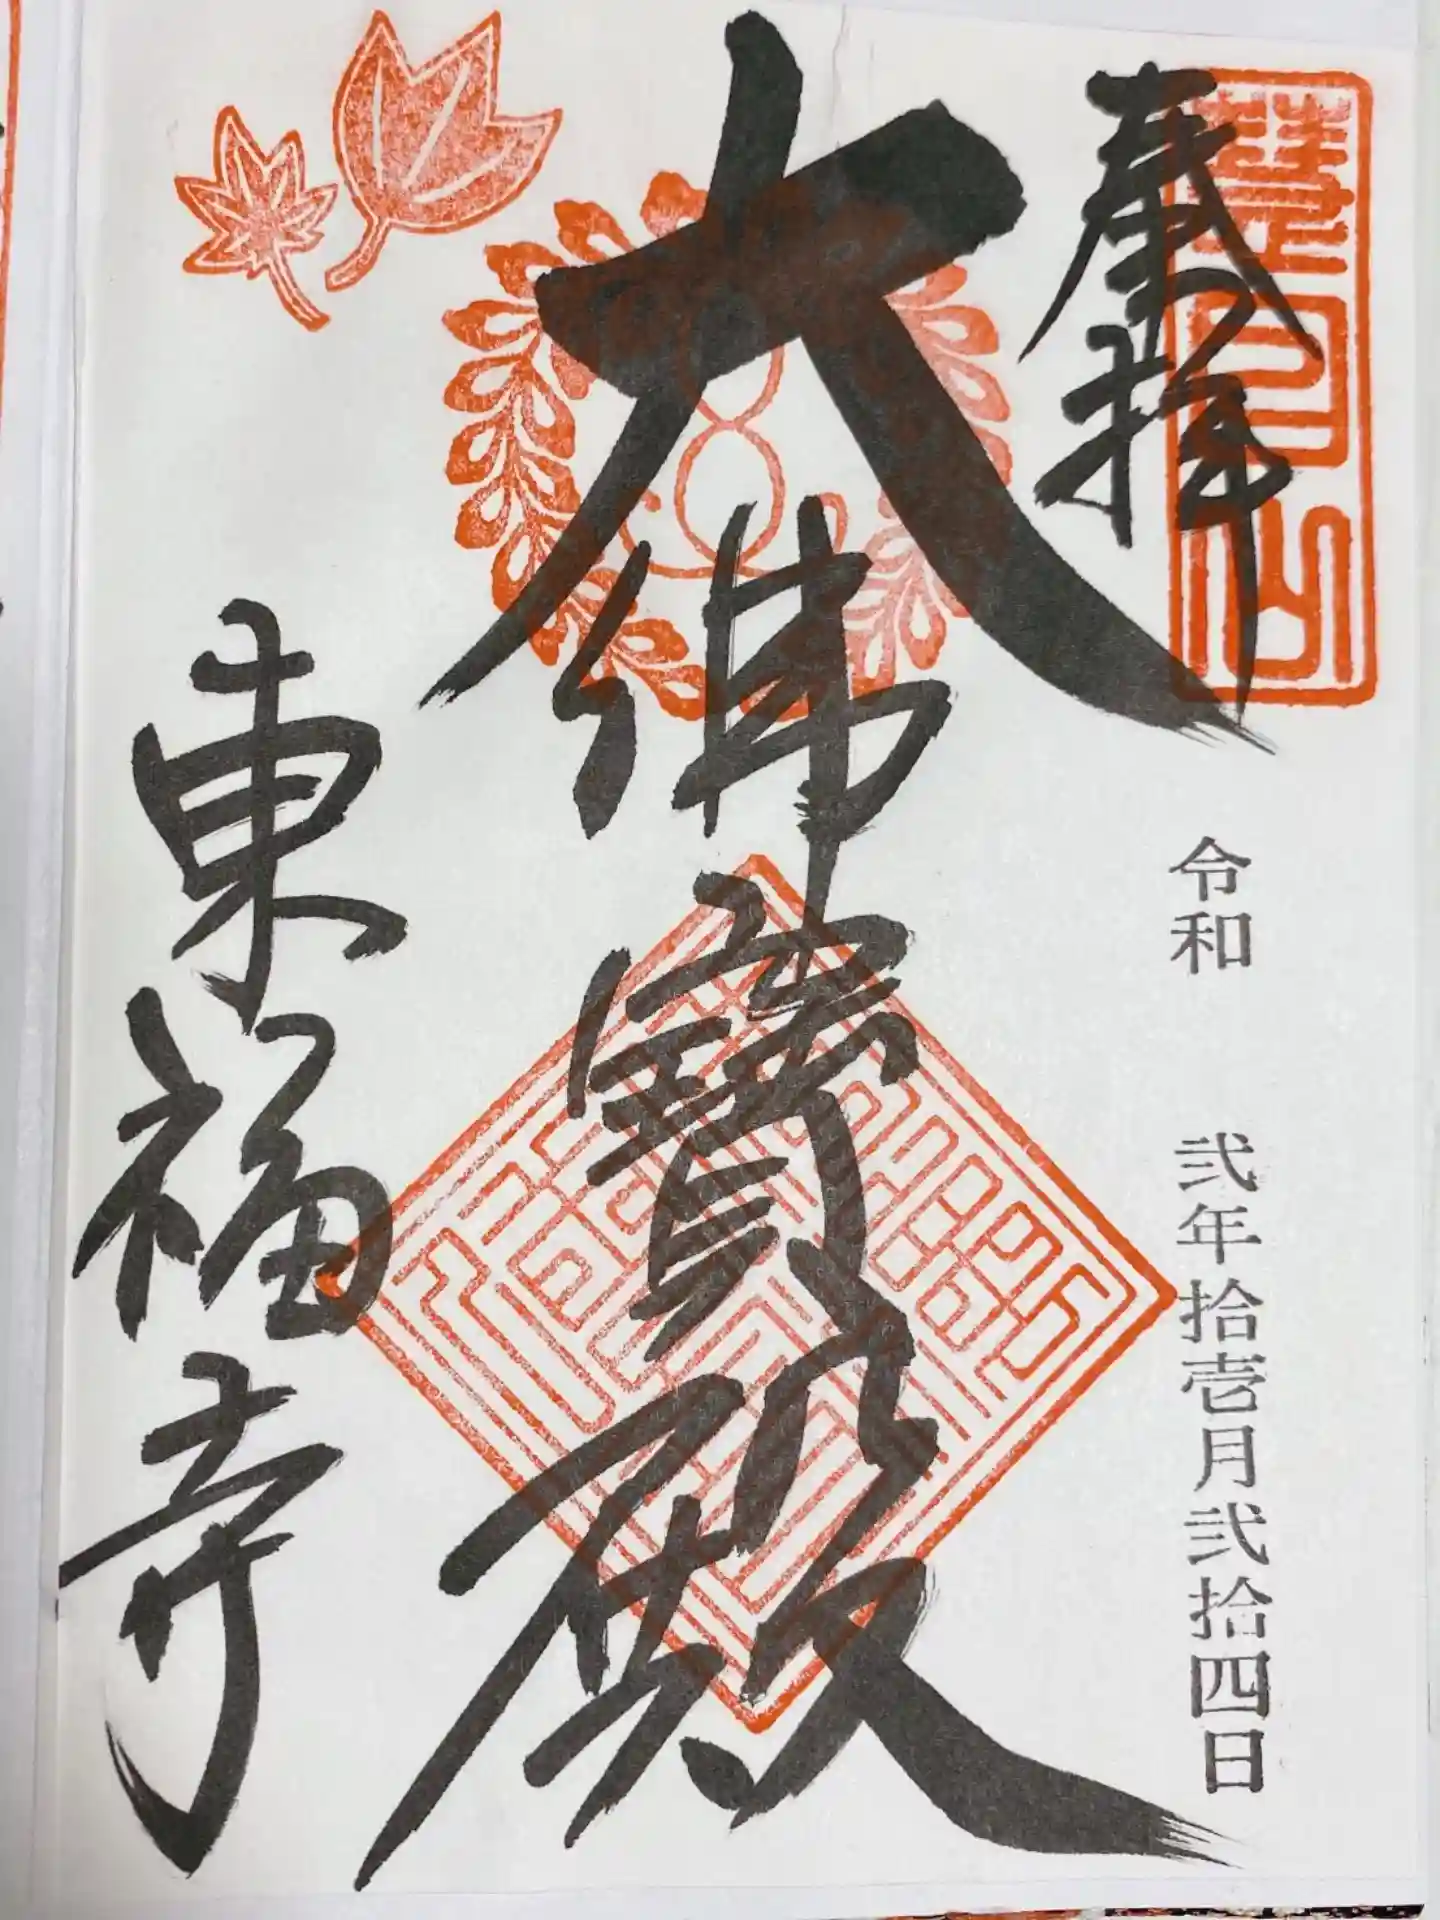 奉拝
令和 弐年拾壱月弐拾四日
大佛寳殿
東福寺